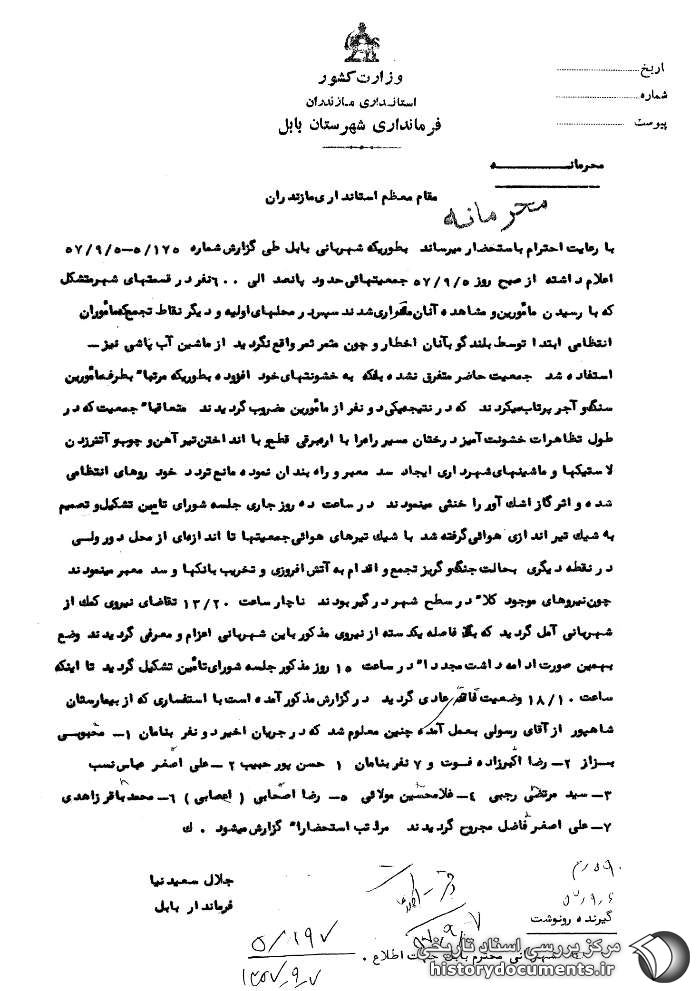 وزارت کشور
استانداری مازندران
فرمانداری شهرستان بابل
تاریخ
شماره
پیوست
محرمانه
مقام معظم استانداری مازندران
محرمانه
با رعایت احترام باستحضار میرساند بطوریکه شهربانی بابل طی گزارش شماره ۵/۱۷۵-۵۷/۹/۵
اعلام داشته از صبح روز ۵۷/۹/۵ جمعیتهائی حدود پانصد الی ۶۰۰ نفر در قسمتهای شهر متشکل
که با رسیدن مأمورین و مشاهده آنان متواری شدند سپس در محلهای اولیه و دیگر نقاط تجمع که مأموران
انتظامی ابتدا توسط بلندگو بآنان اخطار و چون مثمر ثمر واقع نگردید از ماشین آب پاشی نیز -
استفاده شد جمعیت حاضر متفرق نشده بلکه به خشونتهای خود افزوده بطوریکه مرتباً بطرف مأمورین
سنگ و آجر پرتاب میکردند که در نتیجه یکی دو نفر از مأمورین مضروب گردیدند متعاقباً جمعیت که در
طول تظاهرات خشونت آمیز درختان مسیر راه را با اره برقی قطع با انداختن تیر آهن و چوب و آتش زدن
لاستیکها و ماشینهای شهرداری ایجاد سد معبر و راه بندان نموده مانع تردد خود روهای انتظامی
شده و اثر گاز اشک آور را خنثی مینمودند در ساعت ده روز جاری جلسه شورای تامین تشکیل و تصمیم
به شیک تیر اندازی هوائی گرفته شد با شیک تیرهای هوائی جمعیتها تا اندازه‌ای از محل دور ولی
در نقطه دیگری بحالت جنگ و گریز تجمع و اقدام به آتش افروزی و تخریب بانکها و سد معبر مینمودند
چون نیروهای موجود کلاً در سطح شهر درگیر بودند ناچار ساعت ۱۳/۲۰ تقاضای نیروی کمک از
شهربانی آمل گردید که بلا فاصله یکدسته از نیروی مذکور باین شهربانی اعزام و معرفی گردیدند وضع
بهمین صورت ادامه داشت مجدداً در ساعت ۱۵ روز مذکور جلسه شورای تأمین تشکیل گردید تا اینکه
ساعت ۱۸/۱۰ وضعیت عادی گردید در گزارش مذکور آمده است با استفساری که از بیمارستان
شاهپور از آقای رسولی بعمل آمده چنین معلوم شد که در جریان اخیر دو نفر بنامان ۱- محبوبی
بزاز ۲- رضا اکبرزاده فوت و ۷ نفر بنامان ۱ حسن پور حبیب ۲- علی اصغر عباس نسب
۳- سید مرتضی رجبی ۴- غلامحسین مولائی ۵- رضا اصحابی (اعصابی) ۶- محمد باقر زاهدی
۷- علی اصغر فاضل مجروح گردیدند مراتب استحضاراً گزارش میشود . ک
جلال سعیدنیا
فرماندار بابل
گیرنده رونوشت
شهربانی محترم بابل جهت اطلاع .
۵/۱۹۷
۱۳۵۷/۹/۷
مرکز بررسی اسناد تاریخی
historydocuments.ir